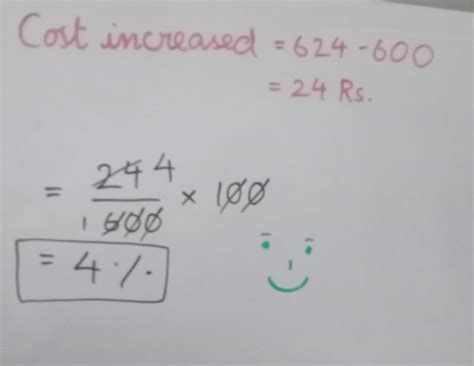 Cost increased = 624 - 600
= 24 Rs.
= 24 4 / 1 600 × 100
= 4 %